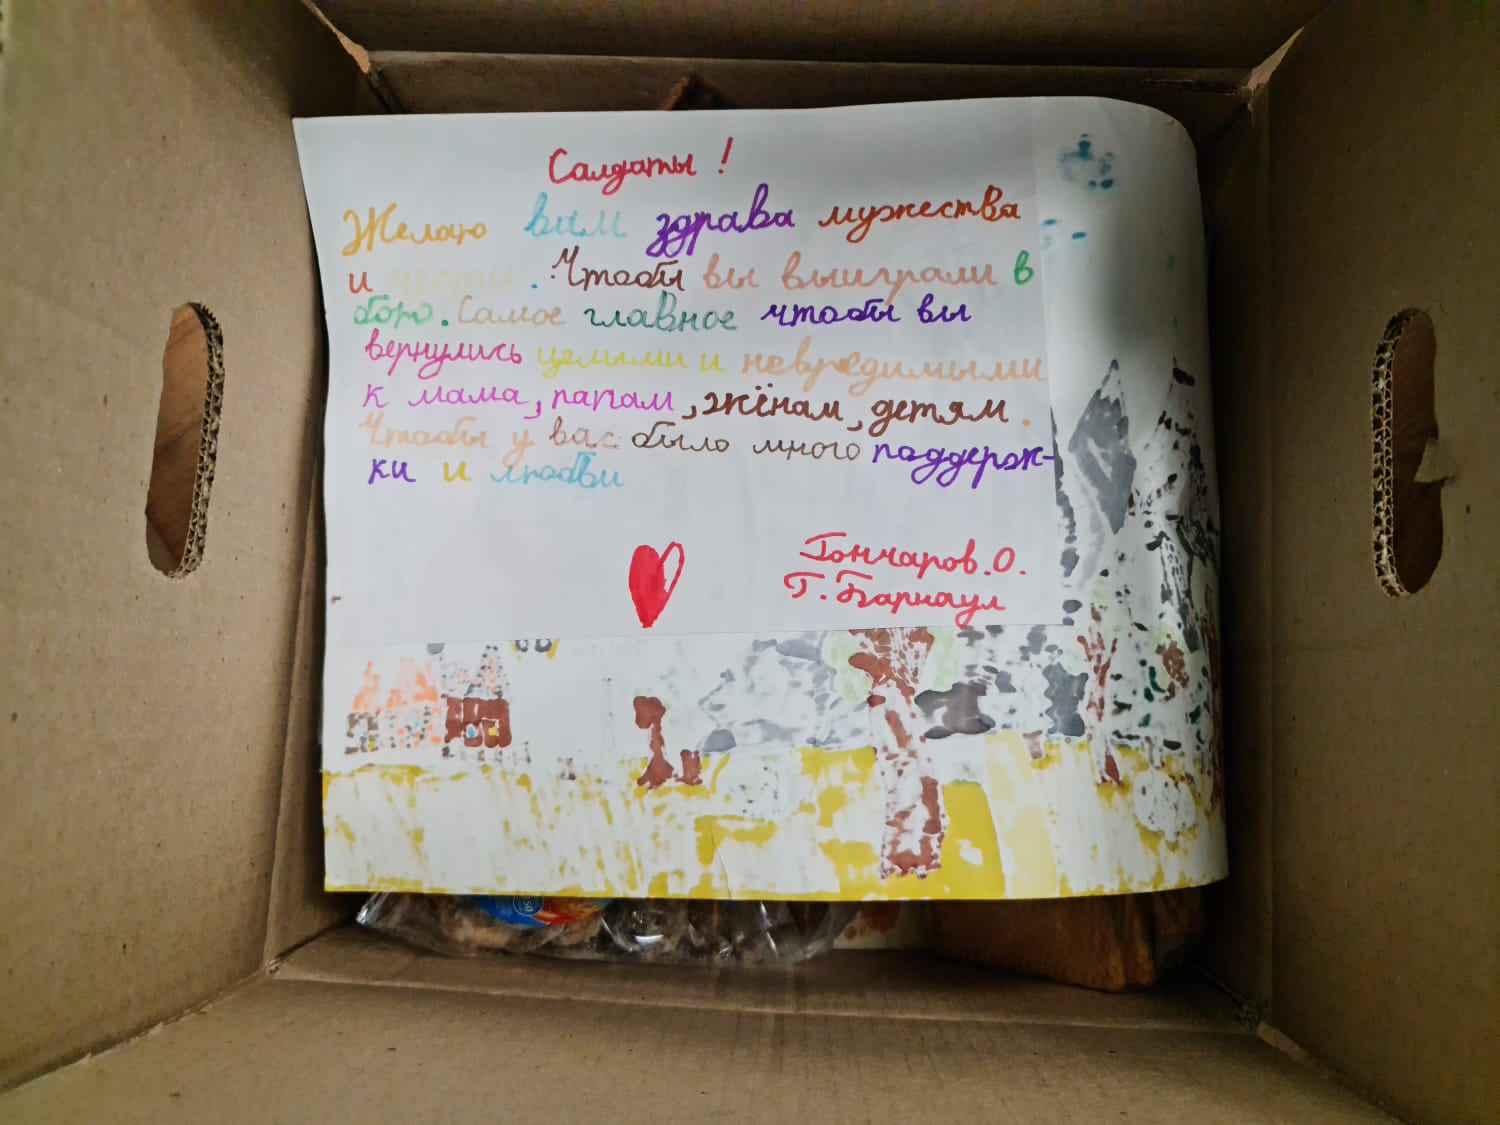 Салдаты!
Желаю вам здрава мужества
и чести. Чтобы вы выиграли в
бою. Самое главное чтобы вы
вернулись целыми и невредимыми
к мама, папам, жёнам, детям.
Чтобы у вас было много поддерж-
ки и любви
Гончаров.О.
Г. Барнаул